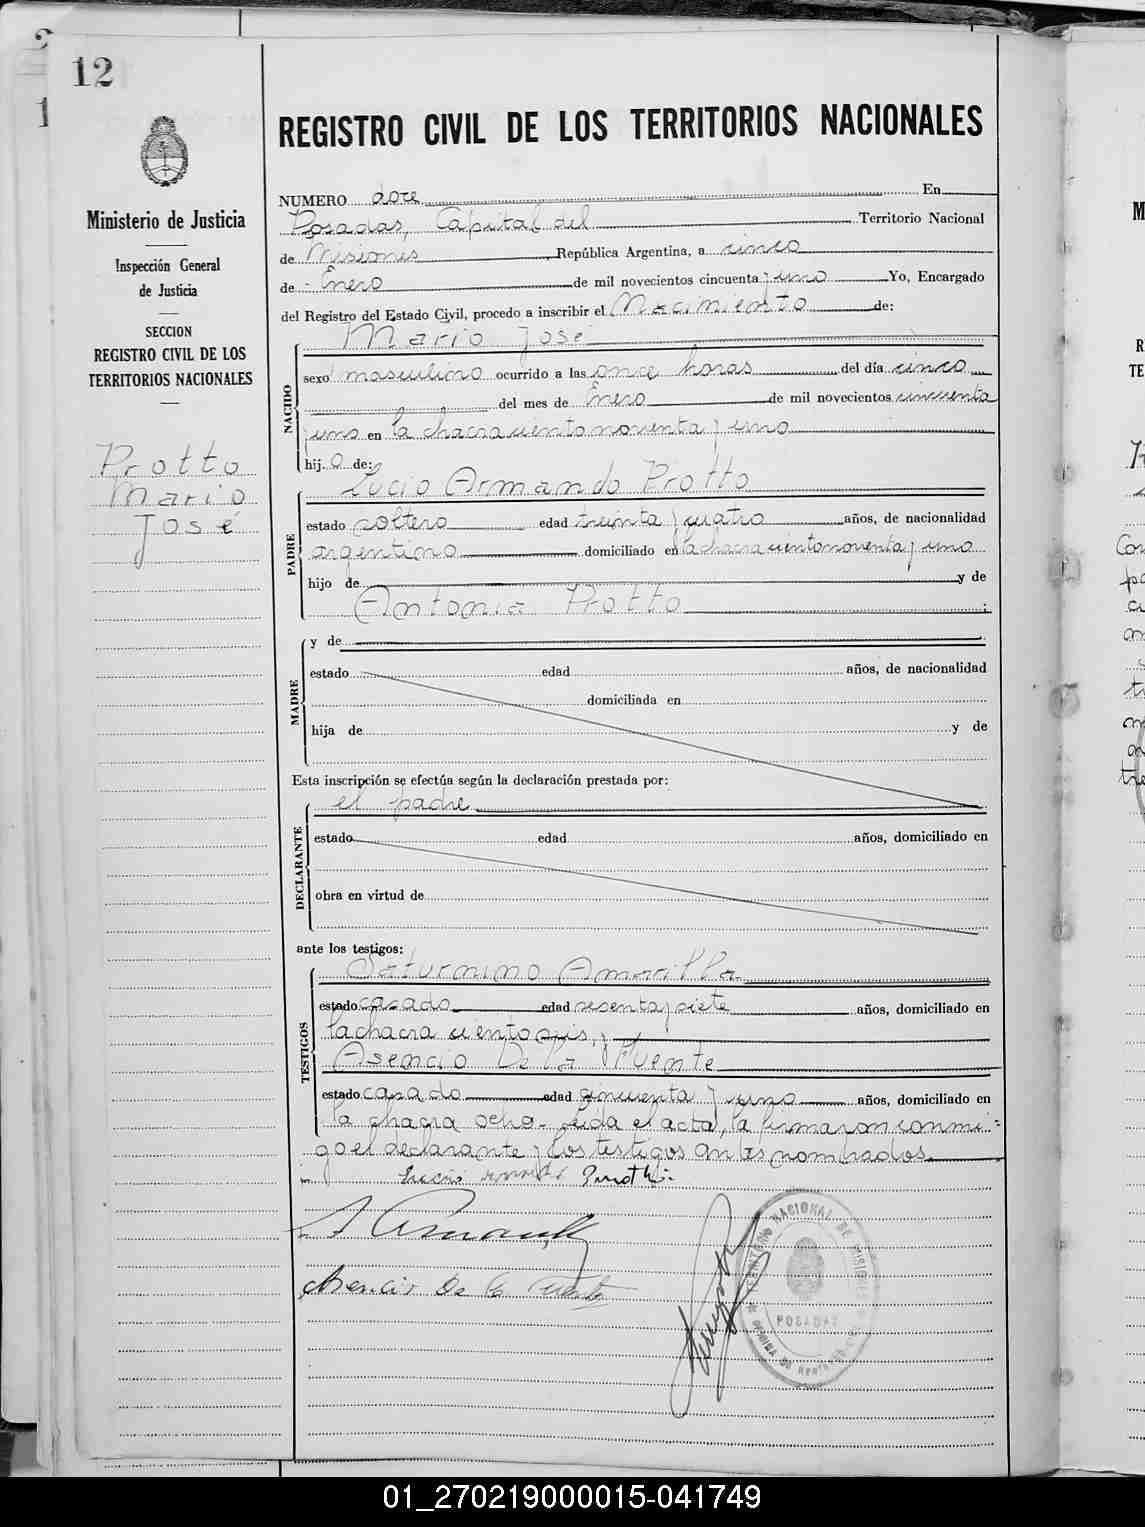 12
Ministerio de Justicia
Inspección General
de Justicia
SECCION
REGISTRO CIVIL DE LOS
TERRITORIOS NACIONALES
Protto
Mario
José
REGISTRO CIVIL DE LOS TERRITORIOS NACIONALES
NUMERO doce En
Posadas, Capital del Territorio Nacional
de Misiones, República Argentina, a cinco
de Enero de mil novecientos cincuenta y uno Yo, Encargado
del Registro del Estado Civil, procedo a inscribir el Nacimiento de:
Mario José
NACIDO
sexo masculino ocurrido a las once horas del día cinco
del mes de Enero de mil novecientos cincuenta
y uno en la chacra ciento noventa y uno
hij o de:
Lucio Armando Protto
PADRE
estado soltero edad treinta y cuatro años, de nacionalidad
argentino domiciliado en la chacra ciento noventa y uno
hijo de y de
Antonia Protto ;
y de
MADRE
estado edad años, de nacionalidad
domiciliada en
hija de y de
Esta inscripción se efectúa según la declaración prestada por:
el padre
DECLARANTE
estado edad años, domiciliado en
obra en virtud de
ante los testigos:
Saturnino Amarilla
TESTIGOS
estado casado edad sesenta y siete años, domiciliado en
la chacra ciento seis, y
Asencio De la Fuente
estado casado edad cincuenta y uno años, domiciliado en
la chacra ocho- Leida el acta, la firmaron conmi-
go el declarante y los testigos antes nombrados.
Lucio
S Amarilla
Asencio De la Fuente
NACIONAL DE MISIONES
POSADAS
01_270219000015-041749